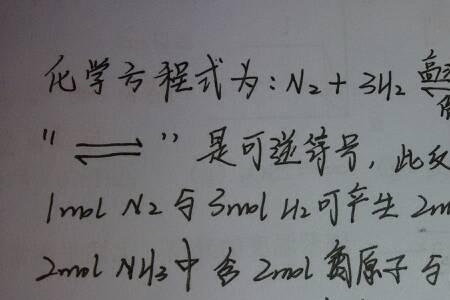 化学方程式为:N₂+3H₂ 高
"⇌"是可逆符号,此反
1mol N₂与3mol H₂可产生2m
2mol NH₃中含2mol氮原子与